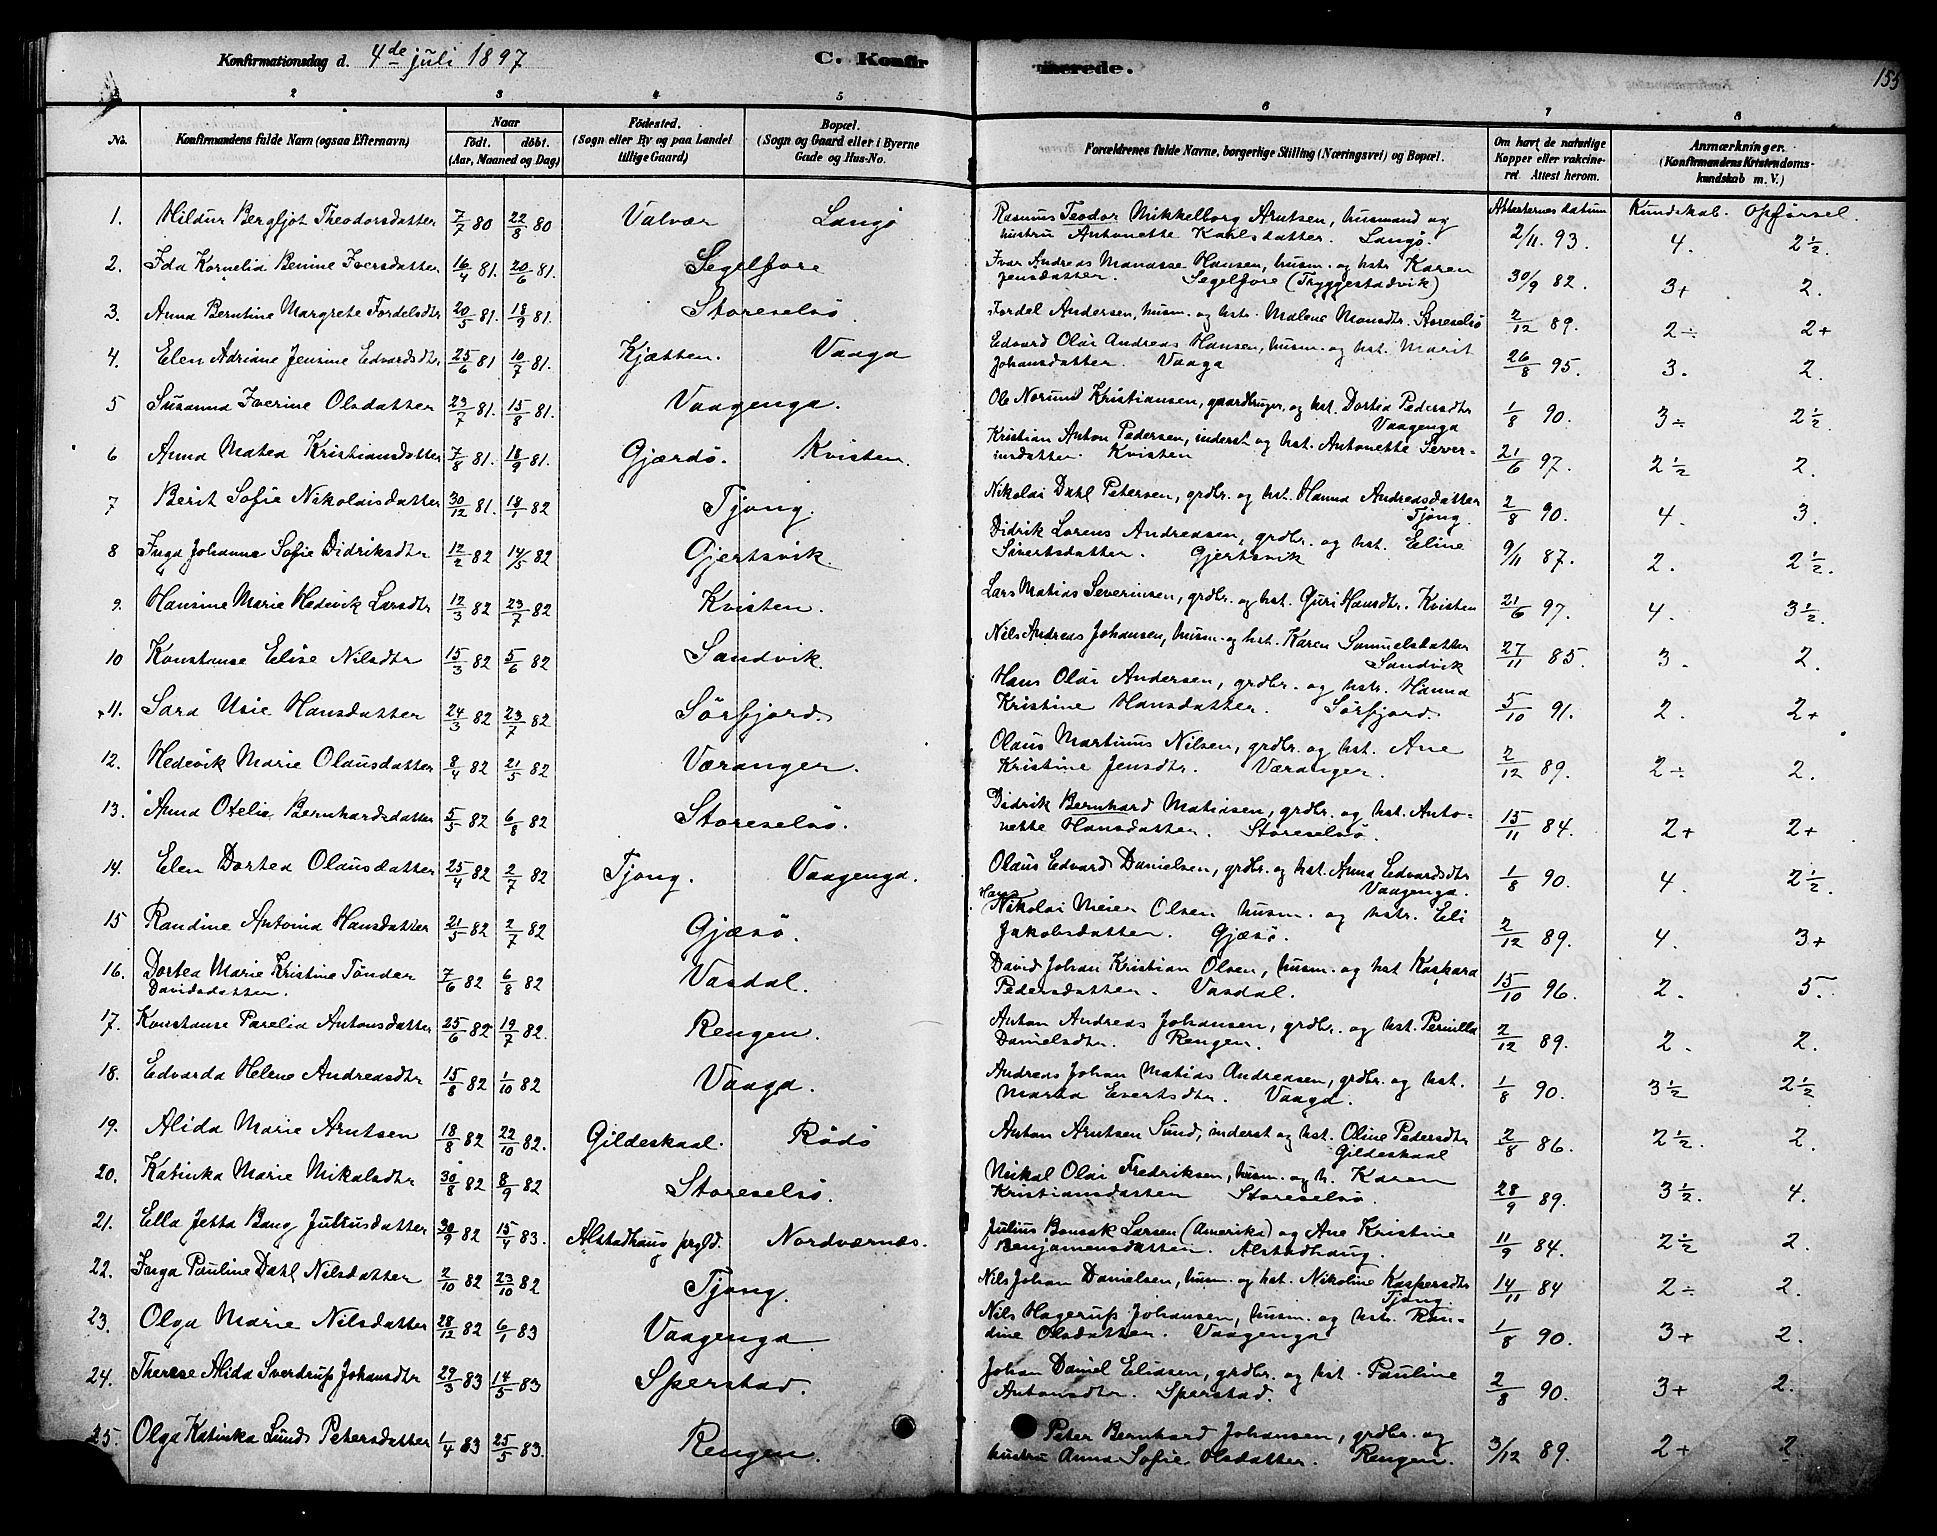 Konfirmationsdag d. 4de juli 1897
C. Konfirmerede.
155
2 3 4 5 6 7 8
No. Konfirmandens fulde Navn (ogsaa Efternavn) Naar født. døbt. (Aar, Maaned og Dag) Fødested. (Sogn eller By og paa Landet tillige Gaard) Bopæl. (Sogn og Gaard eller i Byerne Gade og Hus-No. Forældrenes fulde Navne, borgerlige Stilling (Næringsvei) og Bopæl. Om havt de naturlige Kopper eller vakcineret. Attest herom. Anmærkninger. (Konfirmandens Kristendomskundskab m. V.)
Attesternes datum Kundskab. Opførsel.
1. Hildur Bergljot Theodorsdatter 7/7 80 22/8 80 Valvær Langø Rasmus Teodor Mikkelborg Arntsen, husmand og
hustru Antonette Karlsdatter. Langø. 2/11. 93. 4. 2½.
2. Ida Kornelia Benine Iversdatter 16/4 81. 20/6 81. Segelfore Ivar Andreas Manasse Hansen, husm. og hstr. Karen
Jensdatter. Segelfore (Tryggestadvik) 30/9 82. 3+ 2.
3. Anna Berntine Margrete Fordelsdtr 20/5 81. 18/9 81. Storeselsö. Fordel Andersen, husm. og hstr. Malene Monsdtr. Storeselsö 2/12 89. 2÷ 2+
4. Elen Adriane Jensine Edvardsdtr 25/6 81 10/7 81. Kjætten. Vaaga Edvard Olai Andreas Hansen, husm. og hst. Marit
Johansdatter. Vaaga 26/8 95. 3. 2.
5 Susanna Iverine Olsdatter 23/7 81. 15/8 81. Vaagenga. Ole Norum Kristiansen, gaardbruger, og hst. Dortea Pedersdtr
Vaagenga 1/8 90. 3÷ 2½.
6 Anna Matea Kristiansdatter 7/8 81. 18/9 81. Gjærdö. Kvisten. Kristian Anton Pedersen, inderst og hst. Antonette Sever-
insdatter. Kvisten 21/6 97. 2½ 2.
7 Berit Sofie Nikolaisdatter 30/12 81. 18/1 82 Tjong. Nikolai Dahl Petersen, grdbr. og hst. Hanna Andreasdatter
Tjong. 2/8 90. 4. 3.
8 Inga Johanna Sofie Didriksdtr 12/2 82 14/5 82 Gjertsvik. Didrik Lorens Andreasen, grdbr. og hst. Eline
Sivertsdatter. Gjertsvik 9/11 87. 2. 2½.
9. Hansine Marie Hedevik Larsdtr 12/3 82 23/7 82 Kvisten. Lars Matias Severinsen, grdbr. og hst. Guri Hansdtr. Kvisten 21/6 97. 4. 3½.
10 Konstanse Elise Nilsdtr 15/3 82 5/6 82 Sandvik. Nils Andreas Johansen, husm. og hst. Karen Samuelsdatter
Sandvik 27/11 85. 3. 2.
11. Sara Usie Hansdatter 24/3 82 23/7 82 Sörfjord. Hans Olai Andersen, grdbr. og hstr. Hanna
Kristine Hansdatter. Sörfjord. 5/10 91. 2. 2+
12. Hedevik Marie Olausdatter 8/4 82 21/5 82 Væranger. Olaus Martinus Nilsen, grdbr. og hst. Ane
Kristine Jensdtr. Væranger. 2/12 89. 2÷ 2.
13. Anna Otelie Bernhardsdatter 5/5 82 6/8 82 Storeselsö. Didrik Bernhard Matiasen, grdbr. og hst. Anto-
nette Hansdatter. Storeselsö. 15/11 84. 2+ 2+
14. Elen Dortea Olausdatter 25/4 82 2/7 82 Tjong. Vaagenga. Olaus Edvard Danielsen, grdbr. og hst. Anna Edvardsdtr
Vaagenga. 1/8 90. 4. 2½.
15 Randine Antonia Hansdatter 21/5 82 2/7 82 Gjæsö. Hans Nikolai Meier Olsen husm. og hstr. Eli
Jakobsdatter. Gjæsö. 2/12 89. 4. 3+
16. Dortea Marie Kristine Tönder
Davidsdatter. 7/6 82 6/8 82 Vasdal. David Johan Kristian Olsen, husm. og hst Kaspara
Pedersdatter. Vasdal. 15/10 96. 2. 5.
17. Konstanse Parelia Antonsdatter 25/6 82 19/7 82. Rengen. Anton Andreas Johansen, grdbr. og hst. Pernilla
Danielsdtr. Rengen. 2/12 89. 2. 2.
18. Edvarda Helene Andreasdtr 15/8 82 1/10 82 Vaaga. Andreas Johan Matias Andreasen, grdbr. og hst.
Marta Evertsdtr. Vaaga. 1/8 90. 3½ 2½
19. Alida Marie Arntsen 18/8 82 22/10 82. Gildeskaal. Rödö Anton Arntsen Sund, inderst og hst. Oline Pedersdtr
Gildeskaal 2/8 86. 2½. 2.
20. Katinka Marie Mikalsdtr 30/8 82 8/9 82 Storeselsö. Mikal Olai Fredriksen, husm. og h. Karen
Kristiansdatter Storeselsö. 28/9 89. 3½. 4.
21. Ella Jetta Bang Juliusdatter 30/9 82 15/4 83. Alstadhaug prgld. Nordværnes. Julius Bonsak Larsen (Amerika) og Ane Kristine
Benjamensdatter. Alstadhaug. 11/9 84. 2½ 2.
22. Inga Pauline Dahl Nilsdatter 2/10 82 23/10 82 Tjong. Nils Johan Danielsen, husm. og hst. Nikoline Kaspersdtr
Tjong. 14/11 84 2÷ 2.
23. Olga Marie Nilsdatter 28/12 82 6/1 83 Vaagenga Nils Hagerup Johansen, husm. og hstr. Ran-
dine Olsdatter. Vaagenga 1/8 90. 3+ 2.
24. Therese Alida Sverdrup Johansdtr 29/3 83 14/5 83 Sperstad. Johan Daniel Eliasen, grdbr. og hst. Pauline
Antonsdtr. Sperstad. 2/8 90. 3+ 2.
25. Olga Katinka Lund Petersdatter 1/4 83 25/5 83. Rengen. Peter Bernhard Johansen, grdbr. og
hustru Anna Sofie Olsdatter. Rengen. 3/12 89. 2+ 2.